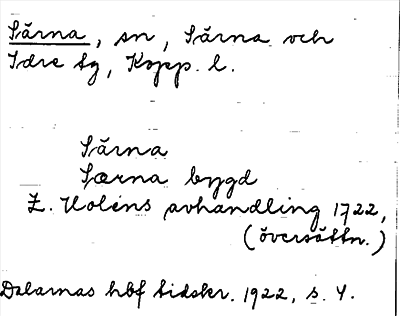 Särna, sn, Särna och
Idre tg, Kopp. l.
Särna
Særna bygd
Z. Holéns avhandling 1722,
(översättn.)
Dalarnas hbf tidskr. 1922, s. 4.